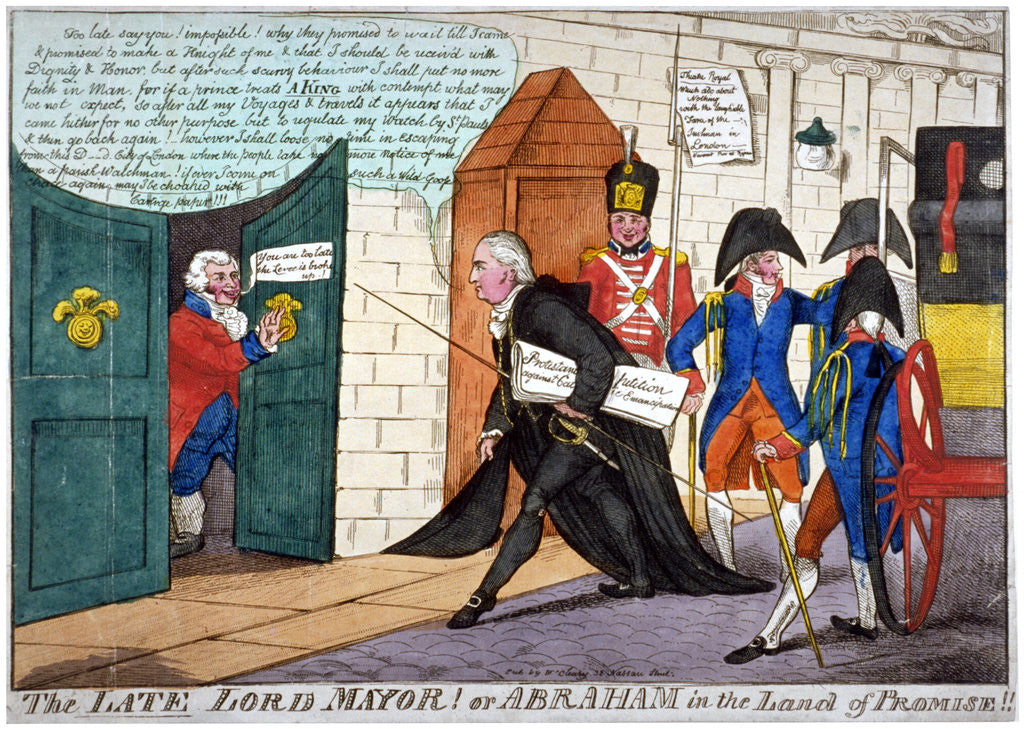 Too late say you! impossible! why they promised to wait till I came
& promised to make a Knight of me & that I should be receiv'd with
Dignity & Honor, but after such scurvy behaviour I shall put no more
faith in Man, for if a prince treats A KING with contempt what may
we not expect, so after all my Voyages & travels it appears that I
came hither for no other purpose but to regulate my Watch by St Pauls
& then go back again! - however I shall loose no time in escaping
from this D--d City of London where the people take no more notice of me
than a parish Watchman! if ever I come on such a Wild Goose
chace again may I be choaked with
Cartrige paper!!!
You are too late
the Levee is broke
up!
Theatre Royal
Much ado about
Nothing
with the laughable
Farce of the
Irishman in
London
Protestant petition
against Cat c Emancipation
Pub by Mc Cleary 32 Nassau Street
The LATE LORD MAYOR! or ABRAHAM in the Land of PROMISE!!